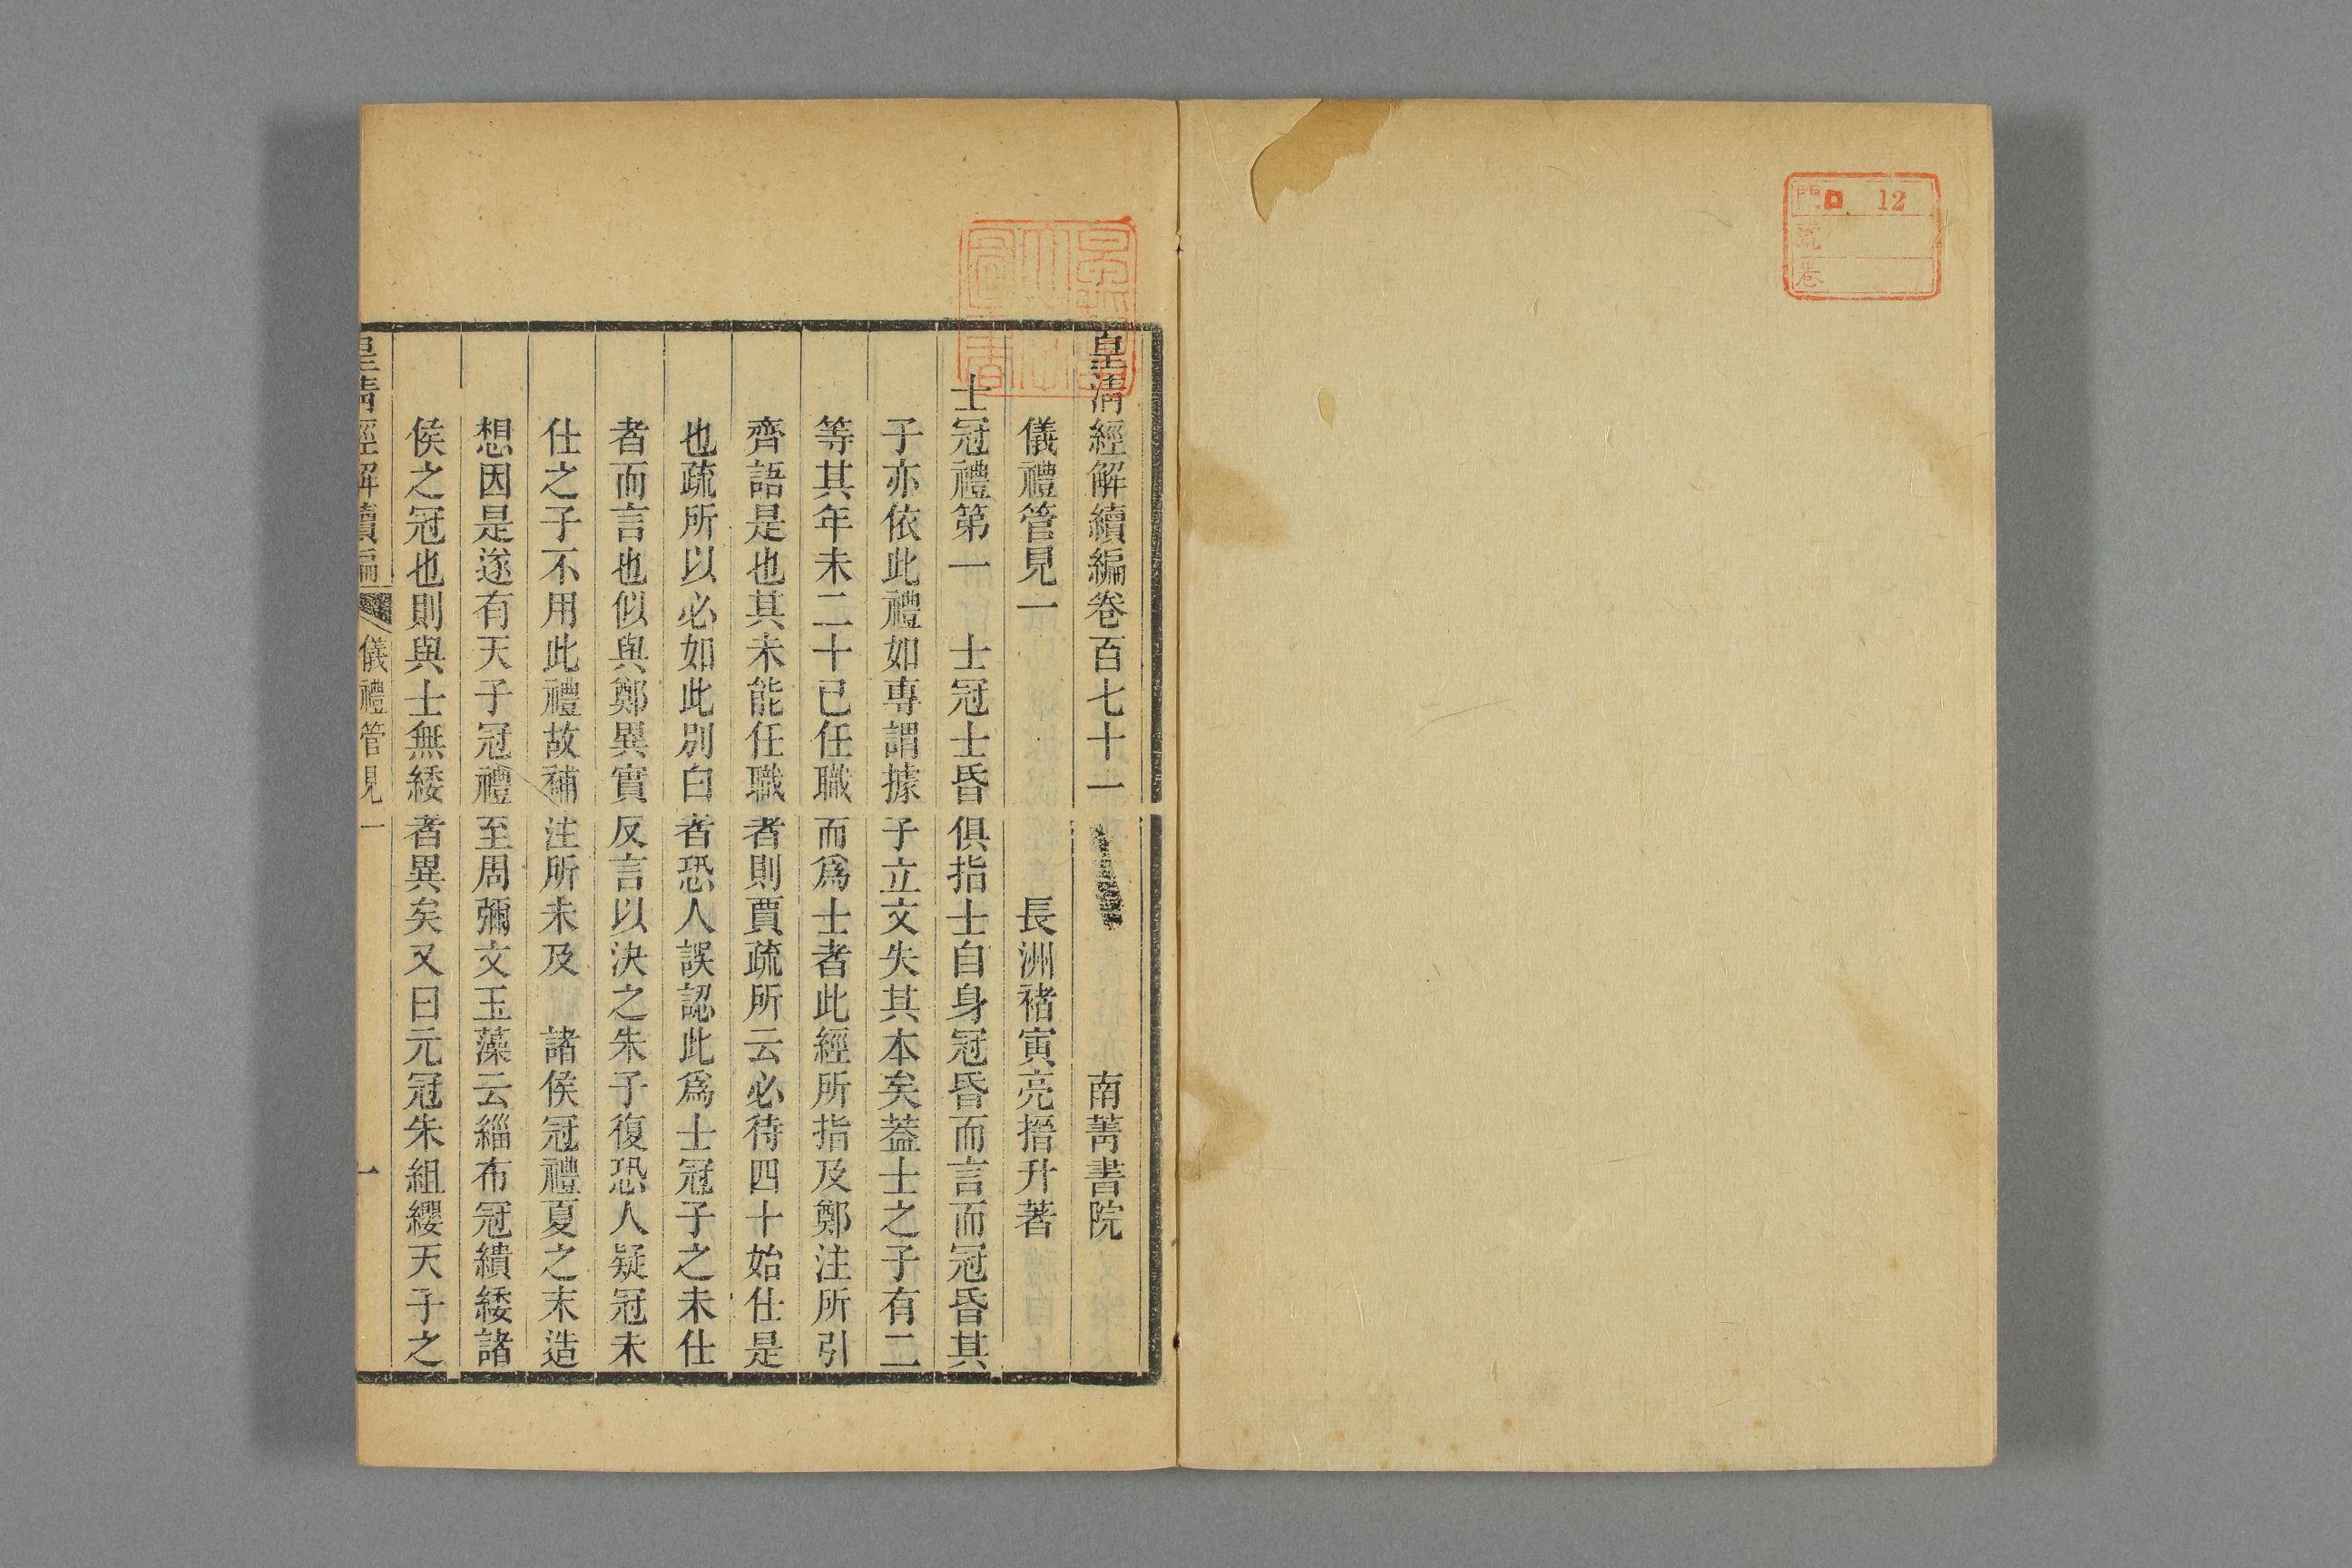 門 12
號
卷
皇清經解續編卷百七十一 南菁書院
儀禮管見一 長洲褚寅亮搢升著
士冠禮第一 士冠士昏俱指士自身冠昏而言而冠昏其
子亦依此禮如專謂據子立文失其本矣葢士之子有二
等其年未二十已任職而爲士者此經所指及鄭注所引
齊語是也其未能任職者則賈疏所云必待四十始仕是
也疏所以必如此別白者恐人誤認此爲士冠子之未仕
者而言也似與鄭異實反言以決之朱子復恐人疑冠未
仕之子不用此禮故補注所未及 諸侯冠禮夏之末造
想因是遂有天子冠禮至周彌文玉藻云緇布冠繢緌諸
侯之冠也則與士無緌者異矣又曰元冠朱組纓天子之
皇清經解續編 儀禮管見一 一